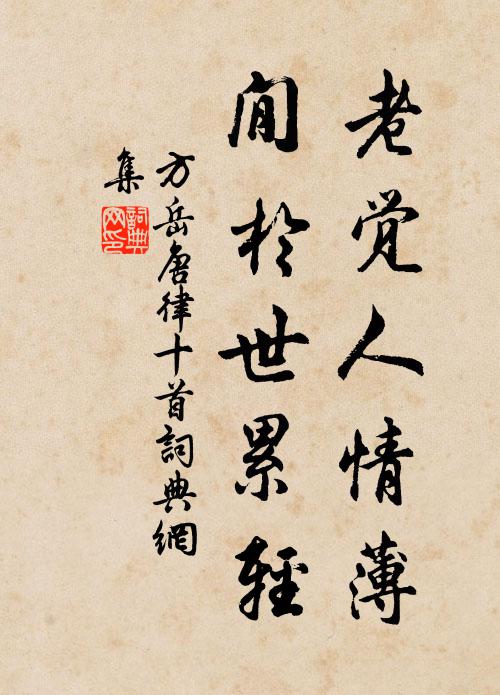 老觉人情薄
閒於世累輕
方岳唐律十首詞典網
集
詞典
网印